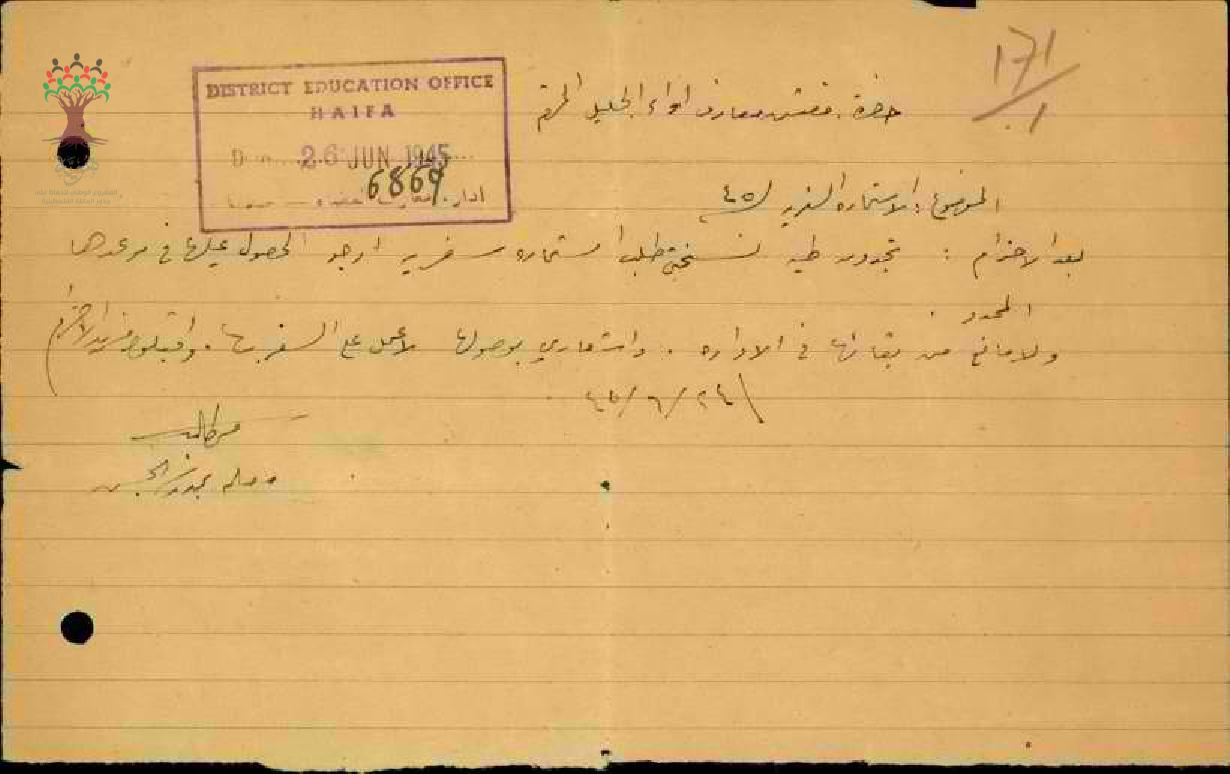 171/1
DISTRICT EDUCATION OFFICE
HAIFA
26 JUN 1945
6869
حضرة مفتش معارف لواء الجليل المحترم
الموضوع: الاستمارة السفرية
بعد الاحترام: تجدون طيه نسختي طلب استمارة سفرية ارجو الحصول عليها في موعدها
المحدد
ولا مانع من بقائها في الادارة. واشعاري بوصولها لاعمل على السفر بها. واقبلوا مزيد الاحترام
٢٤/٦/٤٥
معلم مجد